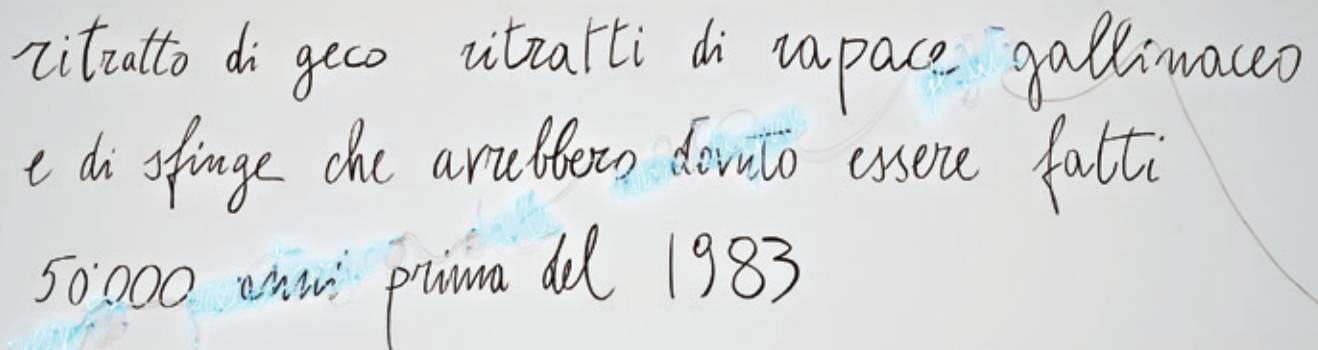 ritratto di geco ritratti di rapace gallinaceo
e di sfinge che avrebbero dovuto essere fatti
50'000 anni prima del 1983